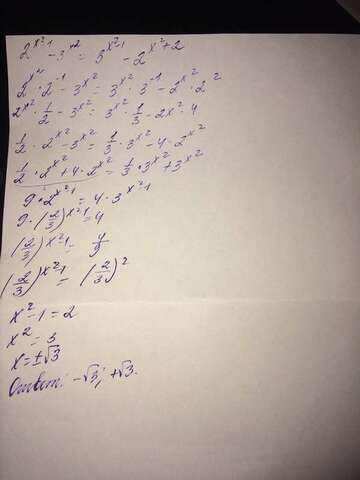 2^{x²-1} - 3^{x²} = 3^{x²-1} - 2^{x²+2}
2^{x²} · 2^{-1} - 3^{x²} = 3^{x²} · 3^{-1} - 2^{x²} · 2²
2^{x²} · 1/2 - 3^{x²} = 3^{x²} · 1/3 - 2x² · 4
1/2 · 2^{x²} - 3^{x²} = 1/3 · 3^{x²} - 4 · 2^{x²}
1/2 · 2^{x²} + 4 · 2^{x²} = 1/3 · 3^{x²} + 3^{x²}
9 · 2^{x²-1} = 4 · 3^{x²-1}
9 · (2/3)^{x²-1} = 4
(2/3)^{x²-1} = 4/9
(2/3)^{x²-1} = (2/3)²
x² - 1 = 2
x² = 3
x = ±√3
Ответ: -√3; +√3.